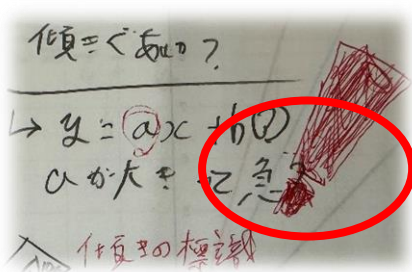 傾きぐあい?
→ y = ax + b(?)
aが大き て急
傾きの標識